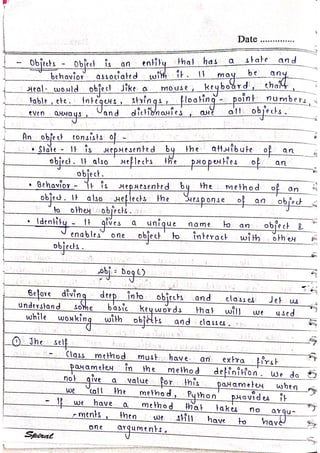 Date ..............
- Objects - Object is an entity that has a state and
behavior associated with it. It may be any
real-world object like a mouse, keyboard, chair,
table, etc. Integers, strings, floating-point numbers,
even arrays, and dictionaries, are all objects.
An object consists of -
• State - It is represented by the attribute of an
object. It also reflects the properties of an
object.
• Behavior - It is represented by the method of an
object. It also reflects the response of an object
to other objects.
• Identity - It gives a unique name to an object &
enables one object to interact with other
objects.
obj = Dog()
Before diving deep into objects and classes let us
understand some basic keywords that will we used
while working with objects and classes.
① The self
- Class method must have an extra first
parameter in the method definition. We do
not give a value for this parameter when
we call the method, Python provides it
- If we have a method that takes no argu-
-ments, then we still have to have
one arguments.
Spiral